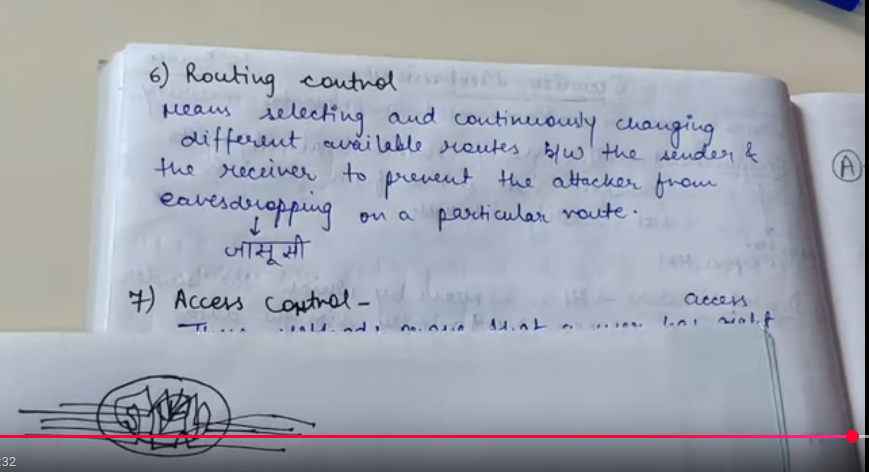 6) Routing control
Means selecting and continuously changing
different available routes b/w the sender &
the receiver to prevent the attacker from
eavesdropping on a particular route.
↓
जासूसी
7) Access control - access
A
:32